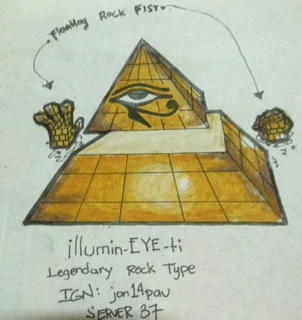 Floating Rock FIST
illumin-EYE-ti
Legendary Rock Type
IGN: jon14pau
SERVER 37